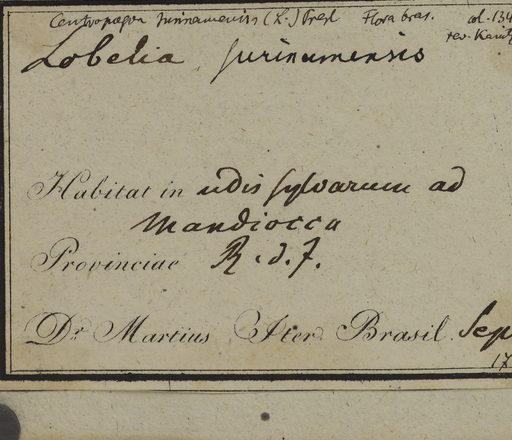 Centropogon surinamensis (L.) Presl Flora bras. col. 134
rev. Kanitz
Lobelia surinamensis
Habitat in udis sylvarum ad
Mandiocca
Provinciae R. d. J.
Dr. Martius Iter Brasil. Sep
17